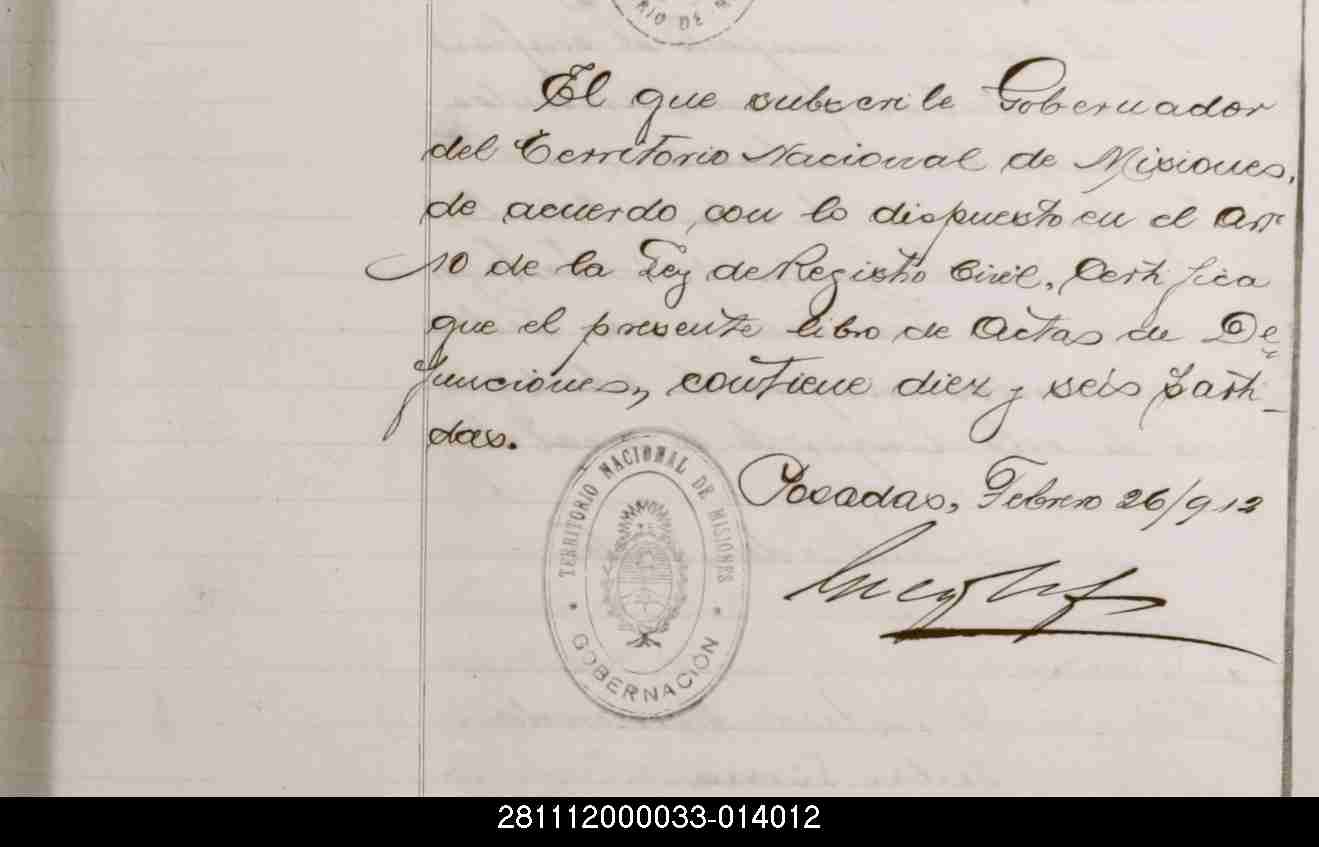 RIO DE M
El que subscribe Gobernador
del Territorio Nacional de Misiones,
de acuerdo con lo dispuesto en el Art
10 de la Ley de Registro Civil, Certifica
que el presente libro de Actas de De
funciones, contiene diez y seis Parti_
das.
TERRITORIO NACIONAL DE MISIONES
GOBERNACIÓN
Posadas, Febrero 26/912
281112000033-014012